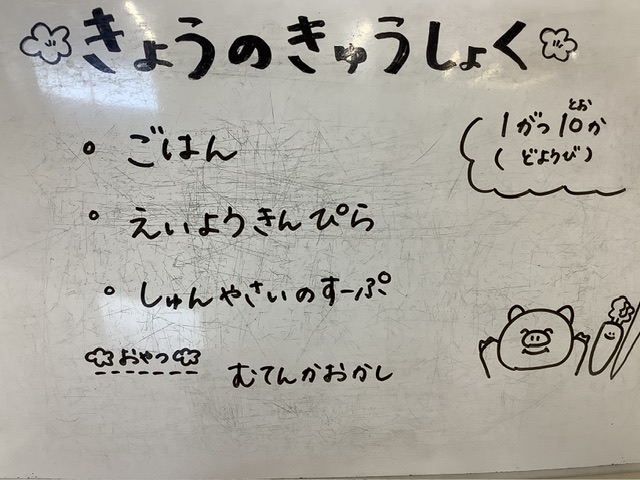 きょうのきゅうしょく
とお
1がつ10か
(どようび)
・ごはん
・えいようきんぴら
・しゅんやさいのすーぷ
おやつ
むてんかおかし